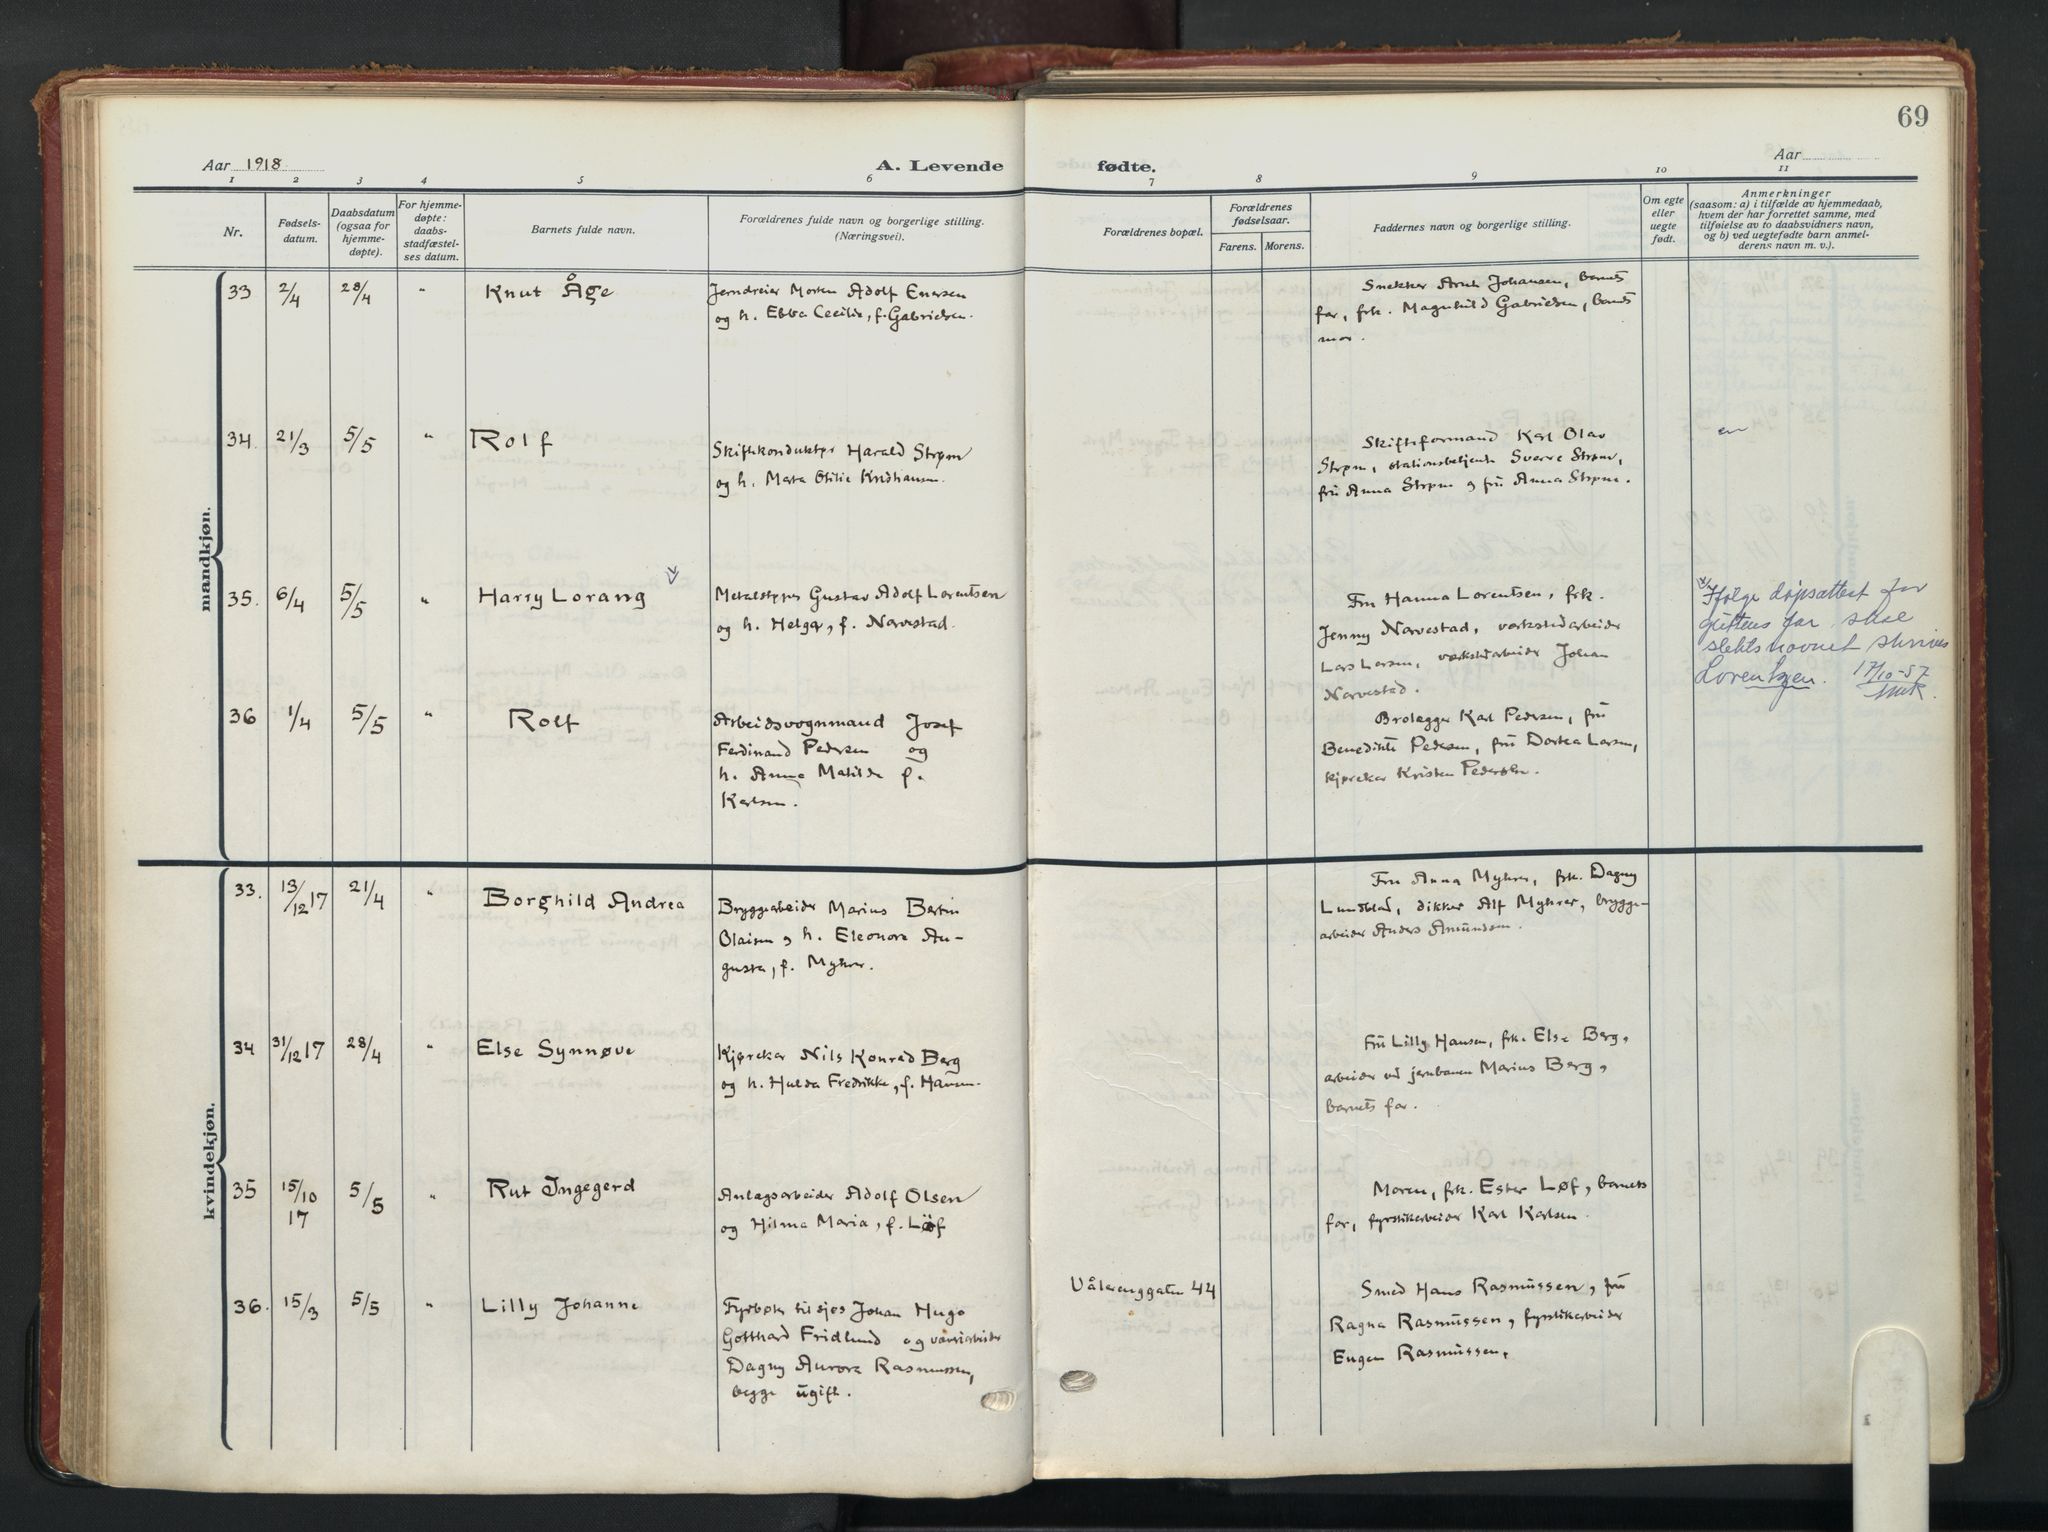 69
Aar 1918
A. Levende
fødte.
Aar
1 2 3 4 5 6 7 8 9 10 11
Nr.
Fødsels-
datum.
Daabsdatum
(ogsaa for
hjemme-
døpte).
For hjemme-
døpte:
daabs-
stadfæstel-
ses datum.
Barnets fulde navn.
Forældrenes fulde navn og borgerlige stilling.
(Næringsvei).
Forældrenes bopæl.
Forældrenes
fødselsaar.
Farens. Morens.
Faddernes navn og borgerlige stilling.
Om egte
eller
uegte
født.
Anmerkninger
(saasom: a) i tilfælde av hjemmedaab,
hvem der har forrettet samme, med
tilføielse av to daabsvidners navn,
og b) ved uegtefødte barn anmel-
derens navn m. v.).
mandkjøn.
33 2/4 28/4 " Knut Åge
Jerndreier Morten Adolf Enersen
og h. Ebba Cecilie, f. Gabrielsen.
Snekker Johansen, barnets
far, frk. Magnhild Gabrielsen, barnets
mor.
34. 21/3 5/5 " Rolf
Skiftekonduktør Harald Strøm
og h. Marta Otilie Kristiansen.
Skifteformand Karl Olav
Strøm, stationsbetjent Sverre Strøm,
frü Anna Strøm og frü Anna Strøm.
35. 6/4 5/5 " Harry Lorang
Metalstøper Gustav Adolf Lorentsen
og h. Helga, f. Narvestad.
Fru Hanna Lorentsen, frk.
Jenny Narvestad, verkstedarbeider
Lars Larsen, verkstedarbeider Johan
Narvestad.
Ifølge dåpsattest for
guttens far skal
slektsnavnet skrives
Lorentzen. 17/10-57
36 1/4 5/5 " Rolf
Arbeidsvognmand Josef
Ferdinand Pedersen og
h. Anna Matilde f.
Karlsen.
Brolægger Karl Pedersen, frü
Benedikte Pedersen, frü Dortea Larsen,
kjørekar Kristen Pedersen.
kvindekjøn.
33. 13/12 17 21/4 " Borghild Andrea
Bryggearbeider Marius Bertin
Olaisen og h. Eleonora Au-
gusta, f. Myhrer.
Fru Anna Myhrer, frk. Dagny
Lundblad, dikker Alf Myhrer, brygge-
arbeider Anders Amundsen.
34 31/12 17 28/4 " Else Synnøve
Kjørekar Nils Konrad Berg
og h. Hulda Fredrikke, f. Hansen.
Frü Lilly Hansen, frk. Else Berg,
arbeider ved jernbanen Marius Berg,
barnets far.
35 15/10 17 5/5 " Rut Ingegerd
Anlægsarbeider Adolf Olsen
og Hilma Maria, f. Löf
Moren, frk. Ester Løf, barnets
far, fyrstikarbeider Karl Karlsen.
36. 15/3 5/5 " Lilly Johanne
Fyrbøter til sjøs Johan Hugo
Gotthard Fridlund og væveriarbeider
Dagny Aurora Rasmussen,
begge ugift.
Vålerenggaten 44
Smed Hans Rasmüssen, frü
Ragna Rasmüssen, fyrstikarbeider
Eugen Rasmüssen.